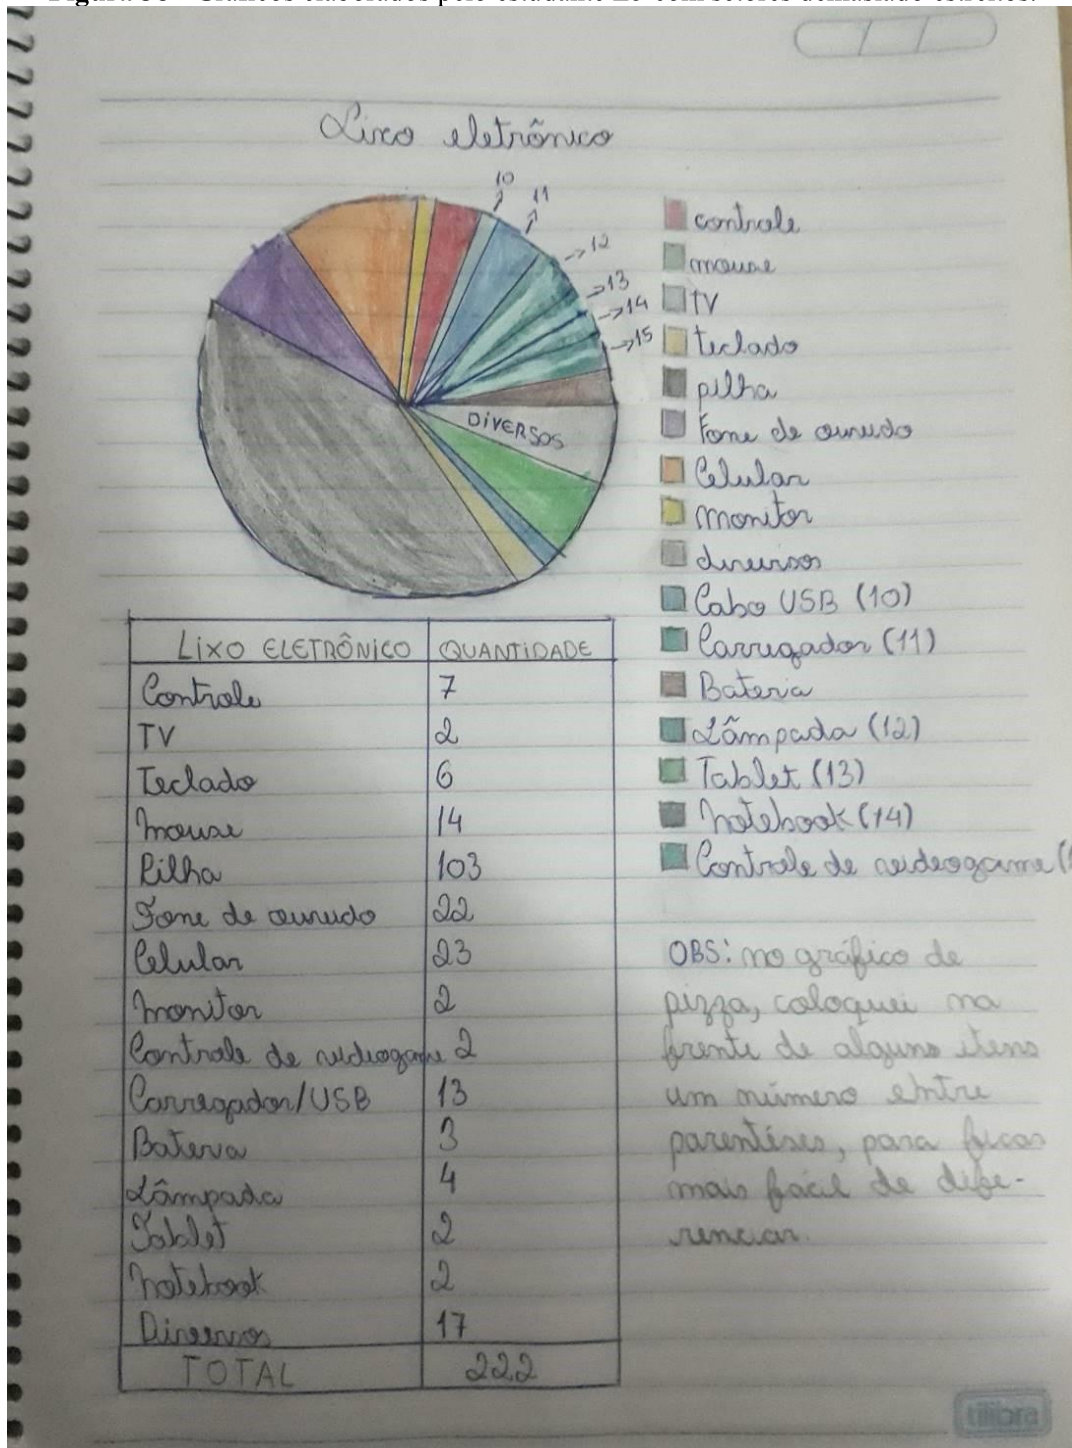 Lixo eletrônico
10
11
12
13
14
15
DIVERSOS
controle
mouse
TV
teclado
pilha
Fone de ouvido
Celular
monitor
diversos
Cabo USB (10)
Carregador (11)
Bateria
Lâmpada (12)
Tablet (13)
notebook (14)
Controle de videogame (
LIXO ELETRÔNICO QUANTIDADE
Controle 7
TV 2
Teclado 6
mouse 14
Pilha 103
Fone de ouvido 22
Celular 23
monitor 2
Controle de videogame 2
Carregador/USB 13
Bateria 3
Lâmpada 4
Tablet 2
notebook 2
Diversos 17
TOTAL 222
OBS: no gráfico de
pizza, coloquei na
frente de alguns itens
um número entre
parentêses, para ficar
mais fácil de dife-
renciar.
tilibra